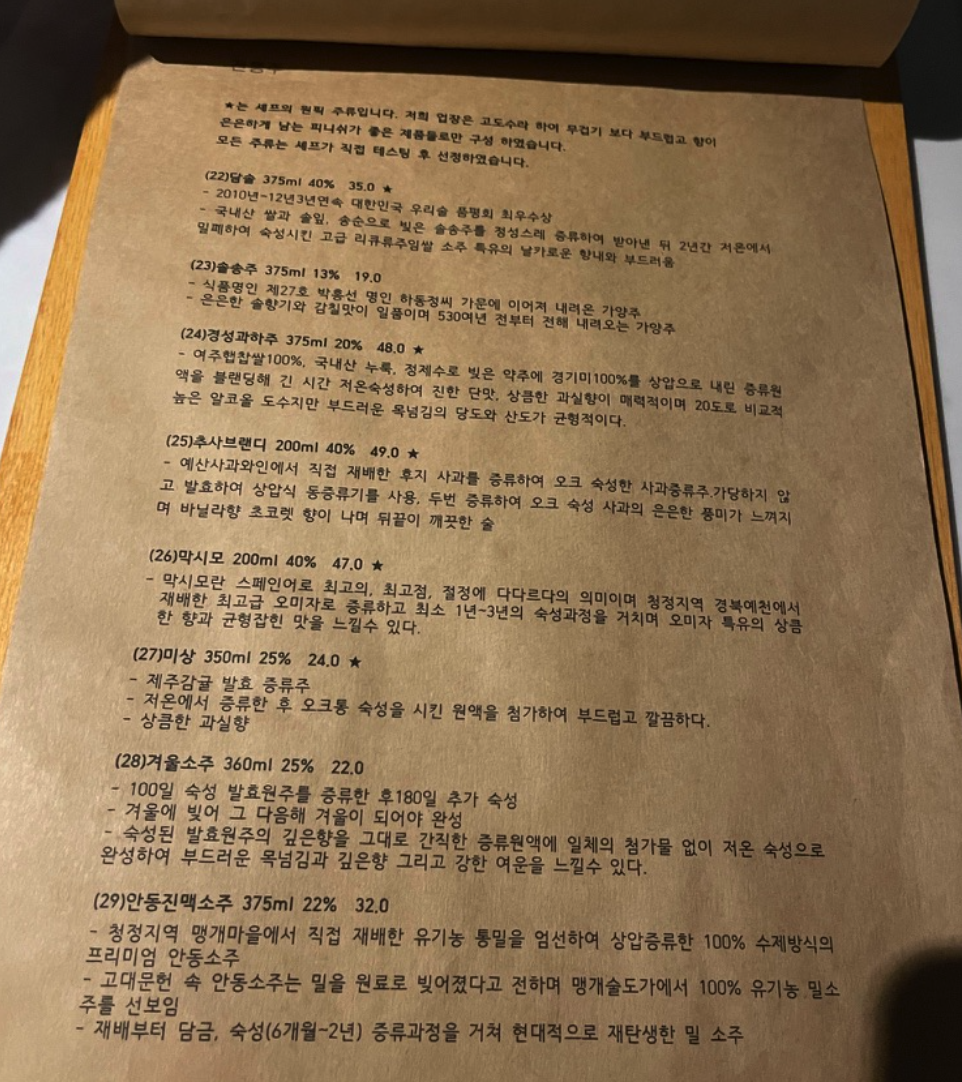 ★는 셰프의 원픽 주류입니다. 저희 업장은 고도수라 하여 무겁기 보다 부드럽고 향이
은은하게 남는 피니쉬가 좋은 제품들로만 구성 하였습니다.
모든 주류는 셰프가 직접 테스팅 후 선정하였습니다.
(22)담솔 375ml 40% 35.0 ★
- 2010년-12년3년연속 대한민국 우리술 품평회 최우수상
- 국내산 쌀과 솔잎, 송순으로 빚은 솔송주를 정성스레 증류하여 받아낸 뒤 2년간 저온에서
밀폐하여 숙성시킨 고급 리큐류주임쌀 소주 특유의 날카로운 향내와 부드러움
(23)솔송주 375ml 13% 19.0
- 식품명인 제27호 박흥선 명인 하동정씨 가문에 이어져 내려온 가양주
- 은은한 솔향기와 감칠맛이 일품이며 530여년 전부터 전해 내려오는 가양주
(24)경성과하주 375ml 20% 48.0 ★
- 여주햅찹쌀100%, 국내산 누룩, 정제수로 빚은 약주에 경기미100%를 상압으로 내린 증류원
액을 블랜딩해 긴 시간 저온숙성하여 진한 단맛, 상큼한 과실향이 매력적이며 20도로 비교적
높은 알코올 도수지만 부드러운 목넘김의 당도와 산도가 균형적이다.
(25)추사브랜디 200ml 40% 49.0 ★
- 예산사과와인에서 직접 재배한 후지 사과를 증류하여 오크 숙성한 사과증류주.가당하지 않
고 발효하여 상압식 동증류기를 사용, 두번 증류하여 오크 숙성 사과의 은은한 풍미가 느껴지
며 바닐라향 초코렛 향이 나며 뒤끝이 깨끗한 술
(26)막시모 200ml 40% 47.0 ★
- 막시모란 스페인어로 최고의, 최고점, 절정에 다다르다의 의미이며 청정지역 경북예천에서
재배한 최고급 오미자로 증류하고 최소 1년~3년의 숙성과정을 거치며 오미자 특유의 상큼
한 향과 균형잡힌 맛을 느낄수 있다.
(27)미상 350ml 25% 24.0 ★
- 제주감귤 발효 증류주
- 저온에서 증류한 후 오크통 숙성을 시킨 원액을 첨가하여 부드럽고 깔끔하다.
- 상큼한 과실향
(28)겨울소주 360ml 25% 22.0
- 100일 숙성 발효원주를 증류한 후180일 추가 숙성
- 겨울에 빚어 그 다음해 겨울이 되어야 완성
- 숙성된 발효원주의 깊은향을 그대로 간직한 증류원액에 일체의 첨가물 없이 저온 숙성으로
완성하여 부드러운 목넘김과 깊은향 그리고 강한 여운을 느낄수 있다.
(29)안동진맥소주 375ml 22% 32.0
- 청정지역 맹개마을에서 직접 재배한 유기농 통밀을 엄선하여 상압증류한 100% 수제방식의
프리미엄 안동소주
- 고대문헌 속 안동소주는 밀을 원료로 빚어졌다고 전하며 맹개술도가에서 100% 유기농 밀소
주를 선보임
- 재배부터 담금, 숙성(6개월~2년) 증류과정을 거쳐 현대적으로 재탄생한 밀 소주